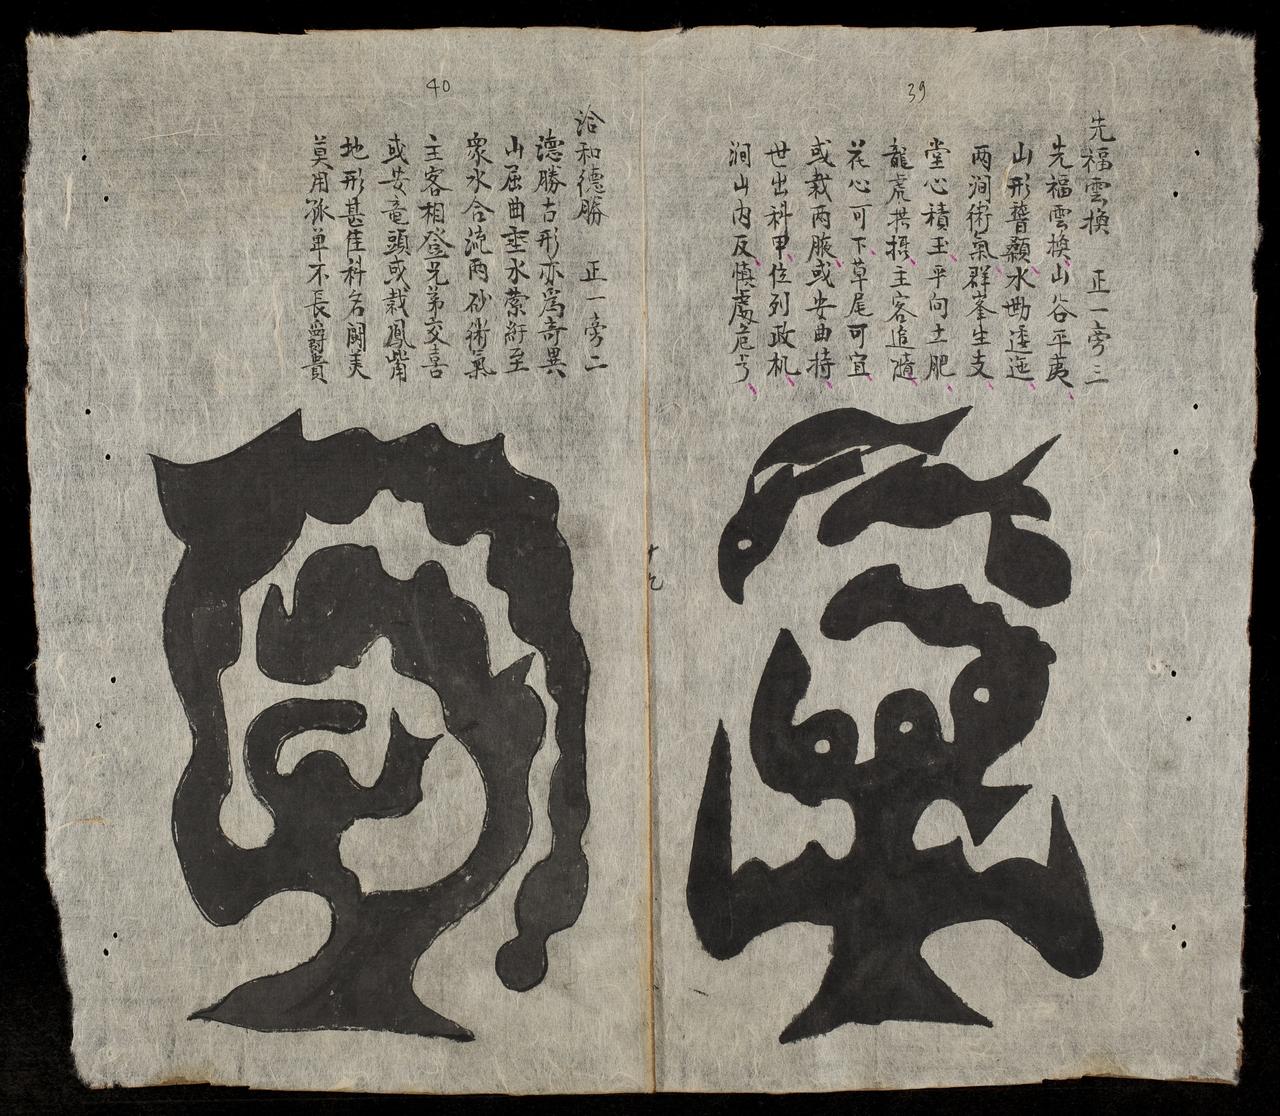 39
先福雲換 正一旁三
先福雲換山谷平夷
山形 水 透迤
两澗術氣群峯生支
堂心積玉平向土肥
龍虎拱 主客追隨
花心可下草尾可宜
或栽两腋或安曲持
世出科甲位列政机
澗山内反慎處危兮
40
洽和德勝 正一旁二
德勝古形亦爲奇異
山屈曲 水縈紆至
衆水合流两砂術氣
主客相登兄弟交喜
或安竜頭或栽鳳觜
地形甚佳科名闘美
莫用 单不長爵貴
十九